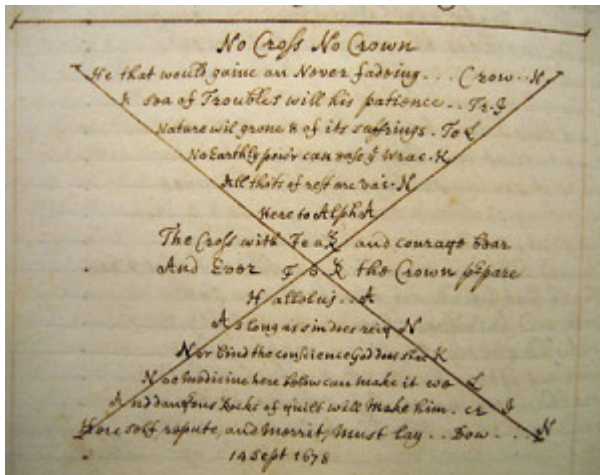 No Cross No Crown
He that would gaine an Never fadeing... Crow..N
A Sea of Troubles will his patience.. Tr.I
Nature wil grone & of its suffrings. To L
No Earthly pow'r can ease yͤ Wrac.K
All thits of rest are vai.N
Here to AlphA
The Cross with FeaR and courage bear
And Ever FoR the Crown prepare
Halleluj..A
As long as sin does reig N
Nor bind the conscience God does
Noe Medicine here below can make it we L
And dang'rous Rocks of guilt will Make him. cr I
Here self repute, and Merrit, Must lay.. Dow...N
14 Sept 1678